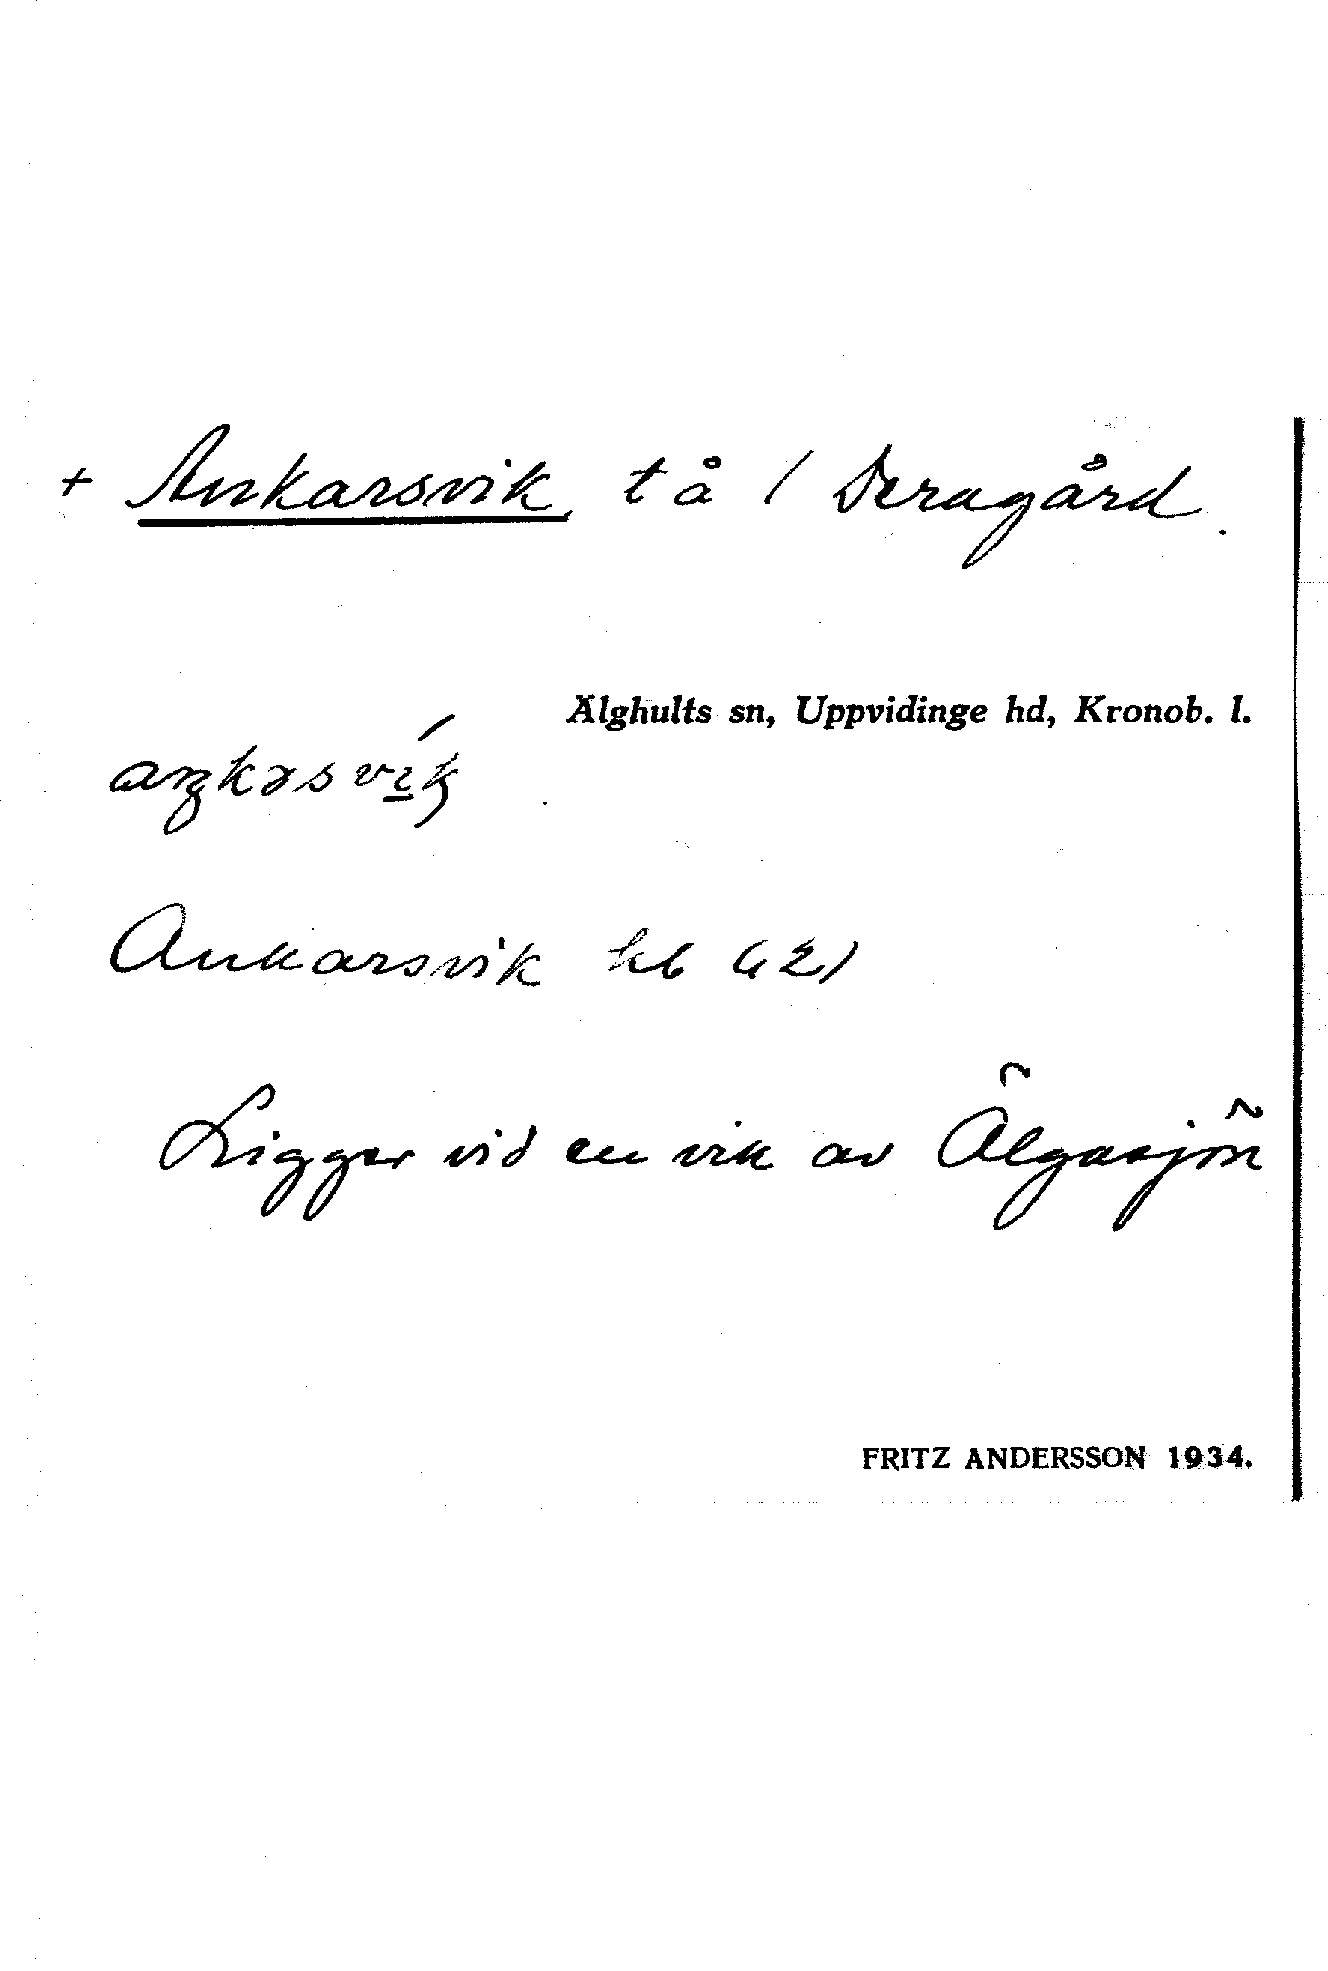 + Ankarsvik, tå / Deragård.
Älghults sn, Uppvidinge hd, Kronob. l.
aŋkəsvi̲k
Ankarsvik hb (21)
Ligger vid en vik av Älgasjön
FRITZ ANDERSSON 1934.